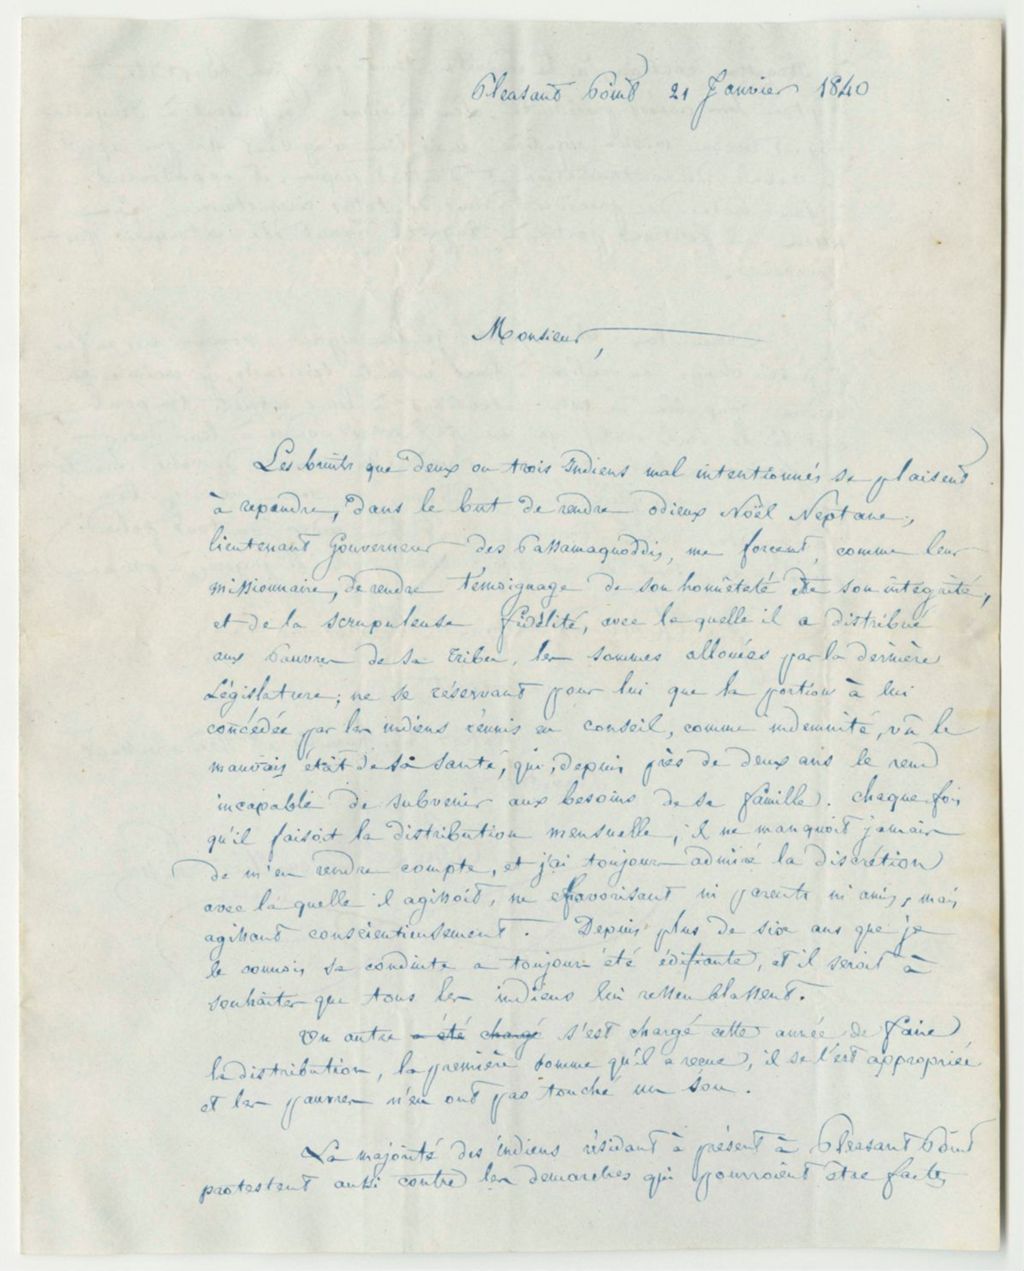 Pleasant Point 21 Janvier 1840
Monsieur,
Les bruits que deux ou trois Indiens mal intentionnés se plaisent
à repandre, dans le but de rendre odieux Noël Neptane,
lieutenant Gouverneur des Passamaquoddis, me forcent, comme leur
missionnaire, de rendre témoignage de son honnêteté de son intégrité,
et de la scrupuleuse fidélité, avec la quelle il a distribué
aux Pauvres de sa tribu, les sommes allouées par la dernière
Législature; ne se réservant pour lui que la portion à lui
concédée par les indiens réunis en conseil, comme indemnité, vû le
mauvais état de sa santé, qui, depuis près de deux ans le rend
incapable de subvenir aux besoins de sa famille. Chaque fois
qu'il faisoit la distribution mensuelle, il ne manquoit jamais
de m'en rendre compte, et j'ai toujours admiré la discrétion
avec la quelle il agissoit, ne favorisant ni parents ni amis, mais
agissant conscientieusement. Depuis plus de six ans que je
le connois sa conduite a toujours été édifiante, et il seroit à
souhaiter que tous les indiens lui ressemblassent.
Un autre a été chargé s'est chargé cette année de faire
la distribution, la première somme qu'il a reçue, il se l'est appropriée
et les pauvres n'en ont pas touché un sou.
La majorité des indiens résidant à présent à Pleasant Point
protestent aussi contre les demarches qui pourroient être faites